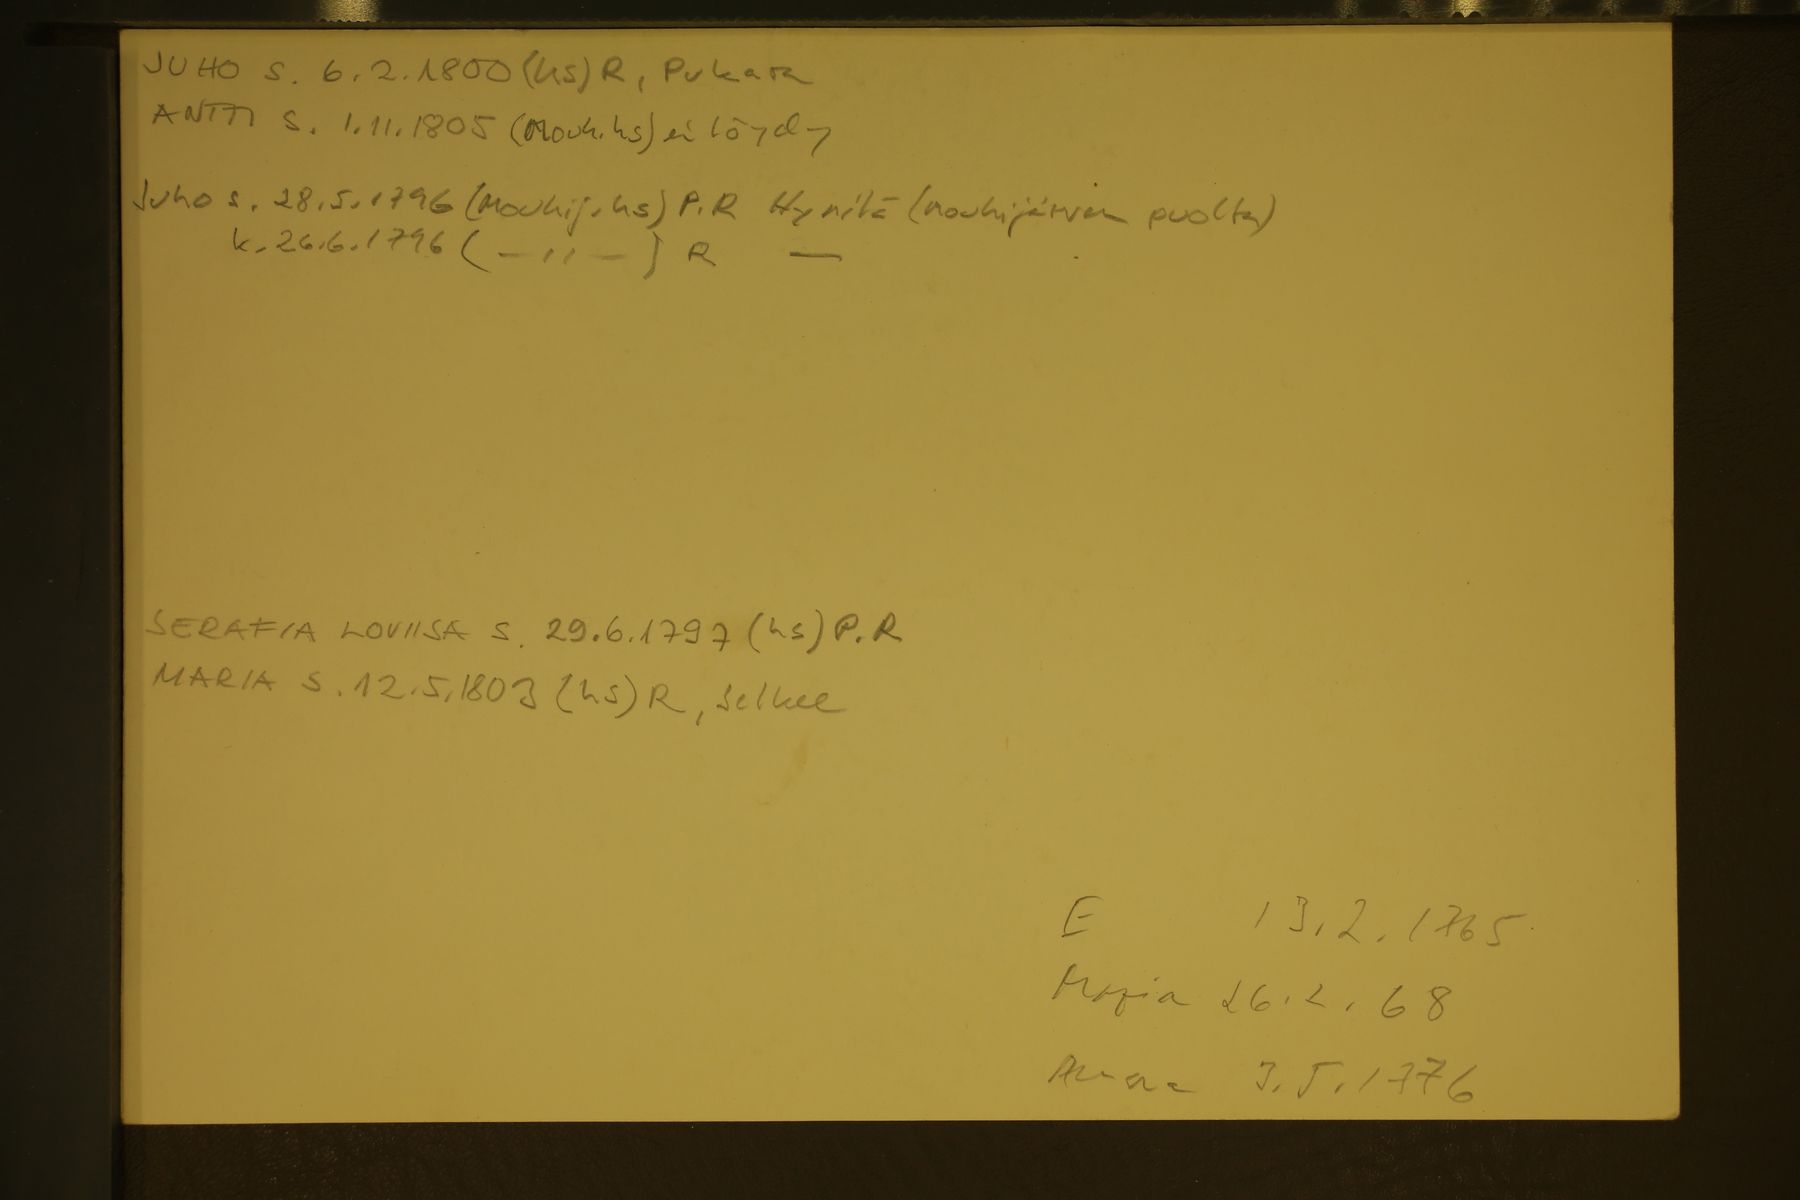 JUHO s. 6.2.1800 (hs) R, Pukara
ANTTI s. 1.11.1805 (Mouh.hs) ei löydy
Juho s. 28.5.1796 (Mouhij.hs) P.R Hynilä (Mouhijärven puolta)
k. 26.6.1796 ( — " — ) R —
SERAFIA LOVIISA s. 29.6.1797 (hs) P.R
MARIA s. 12.5.1803 (hs) R, Selkee
E 13.2.1765
Maria 26.2.68
Anna 3.5.1776